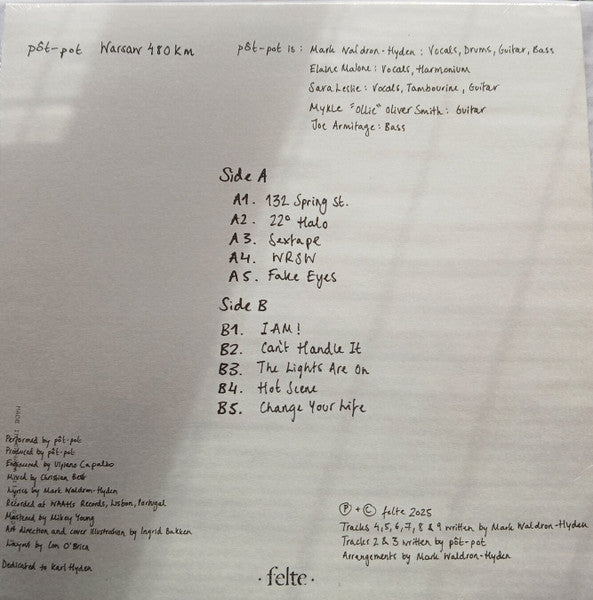 pôt-pot Warsaw 480km
pôt-pot is: Mark Waldron-Hyden: Vocals, Drums, Guitar, Bass
Elaine Malone: Vocals, Harmonium
Sara Leslie: Vocals, Tambourine, Guitar
Mykle "Ollie" Oliver Smith: Guitar
Joe Armitage: Bass
Side A
A1. 132 Spring St.
A2. 22° Halo
A3. Sextape
A4. WRSW
A5. Fake Eyes
Side B
B1. I AM!
B2. Can't Handle It
B3. The Lights Are On
B4. Hot Scene
B5. Change Your Life
MADE
Performed by pôt-pot
Produced by pôt-pot
Engineered by Capalbo
Mixed by Christian Best
Lyrics by Mark Waldron-Hyden
Recorded at Records, Lisbon, Portugal
Mastered by Mikey Young
Art direction and cover illustration by Ingrid Bakken
Layout by O'Brien
Dedicated to Karl Hyden
Ⓟ + © felte 2025
Tracks 4,5,6,7, 8 & 9 written by Mark Waldron-Hyden
Tracks 2 & 3 written by pôt-pot
Arrangements by Mark Waldron-Hyden
· felte ·